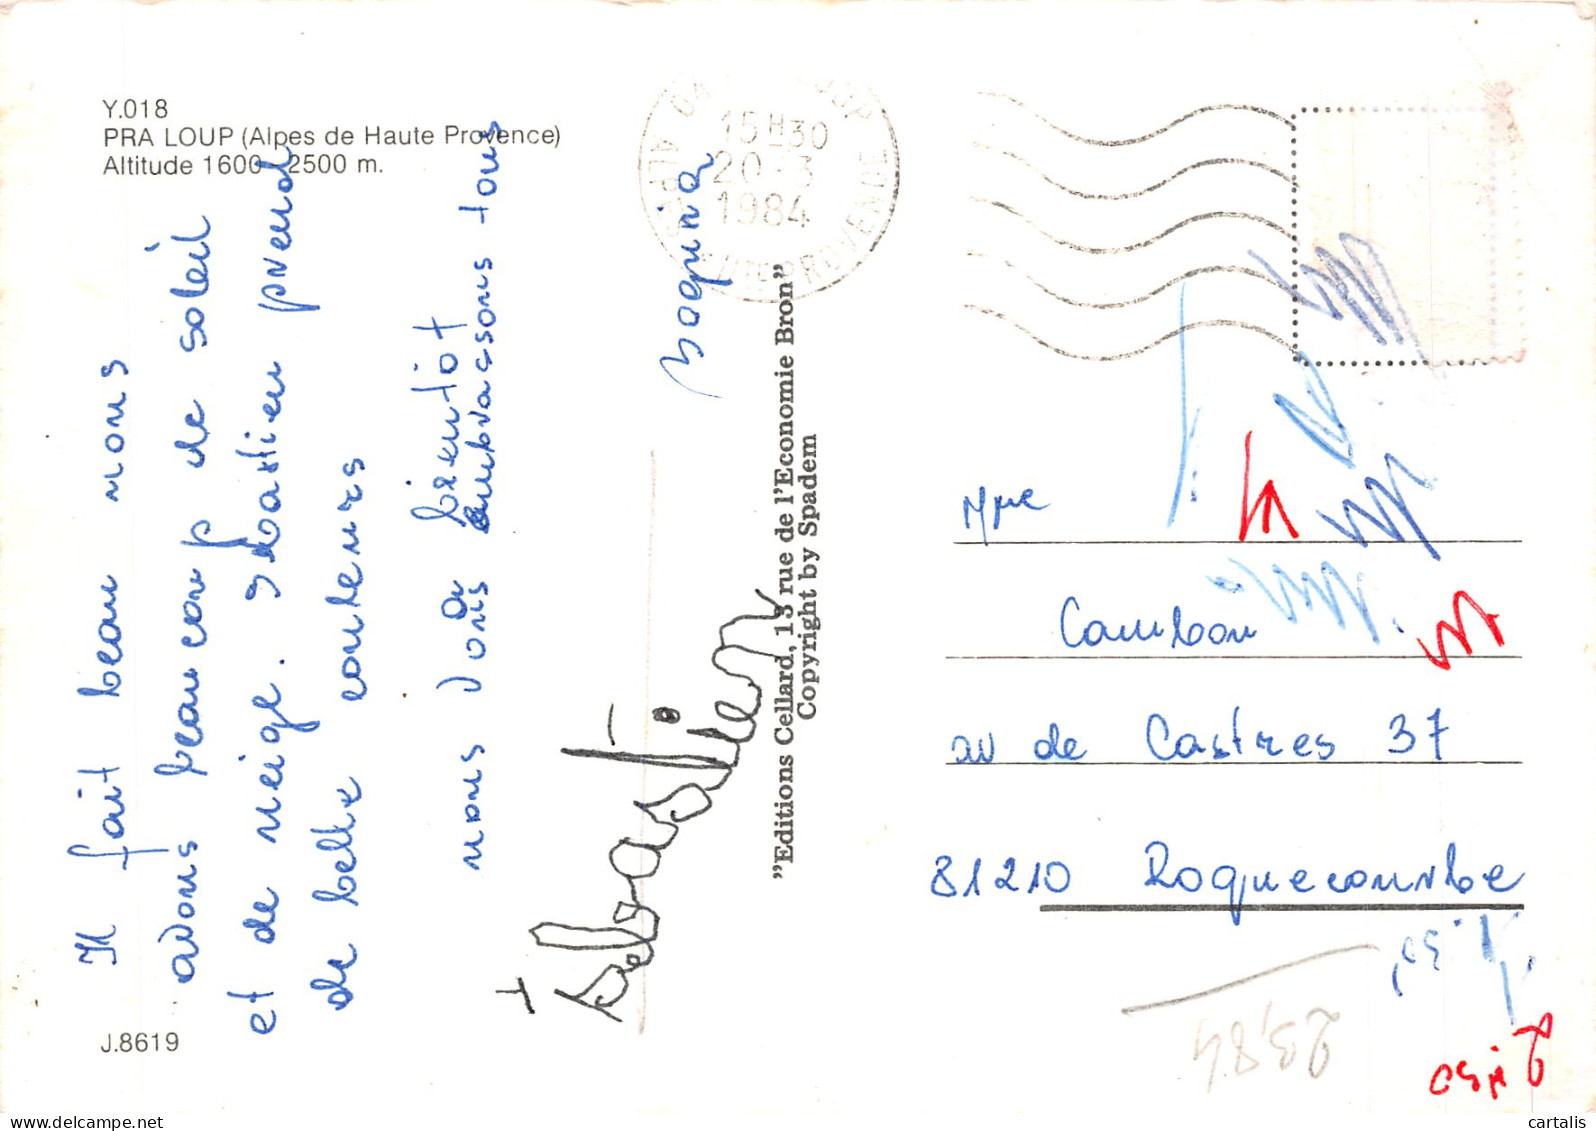 Y.018
PRA LOUP (Alpes de Haute Provence)
Altitude 1600-2500 m.
Il fait beau nous
avons beaucoup de soleil
et de neige. Sébastien prend
de belle couleurs
à bientôt
nous vous embrassons tous
Sébastien
J.8619
"Editions Cellard, 13 rue de l'Economie Bron"
Copyright by Spadem
15H30
20-3
1984
ALPES
PROVENCE
Mme
Cambon
av de Castres 37
81210 Roquecourbe
cartalis